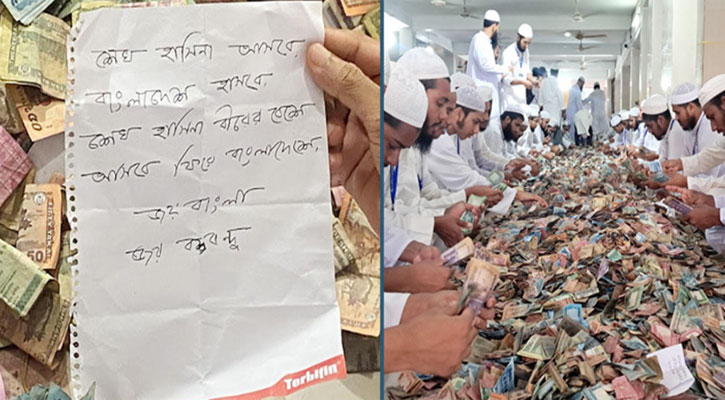 শেখ হাসিনা আসবে,
বাংলাদেশ হাসবে
শেখ হাসিনা বীরের বেশে
আসবে ফিরে বাংলাদেশে,
জয় বাংলা
জয় বঙ্গবন্ধু
Terbifin
50